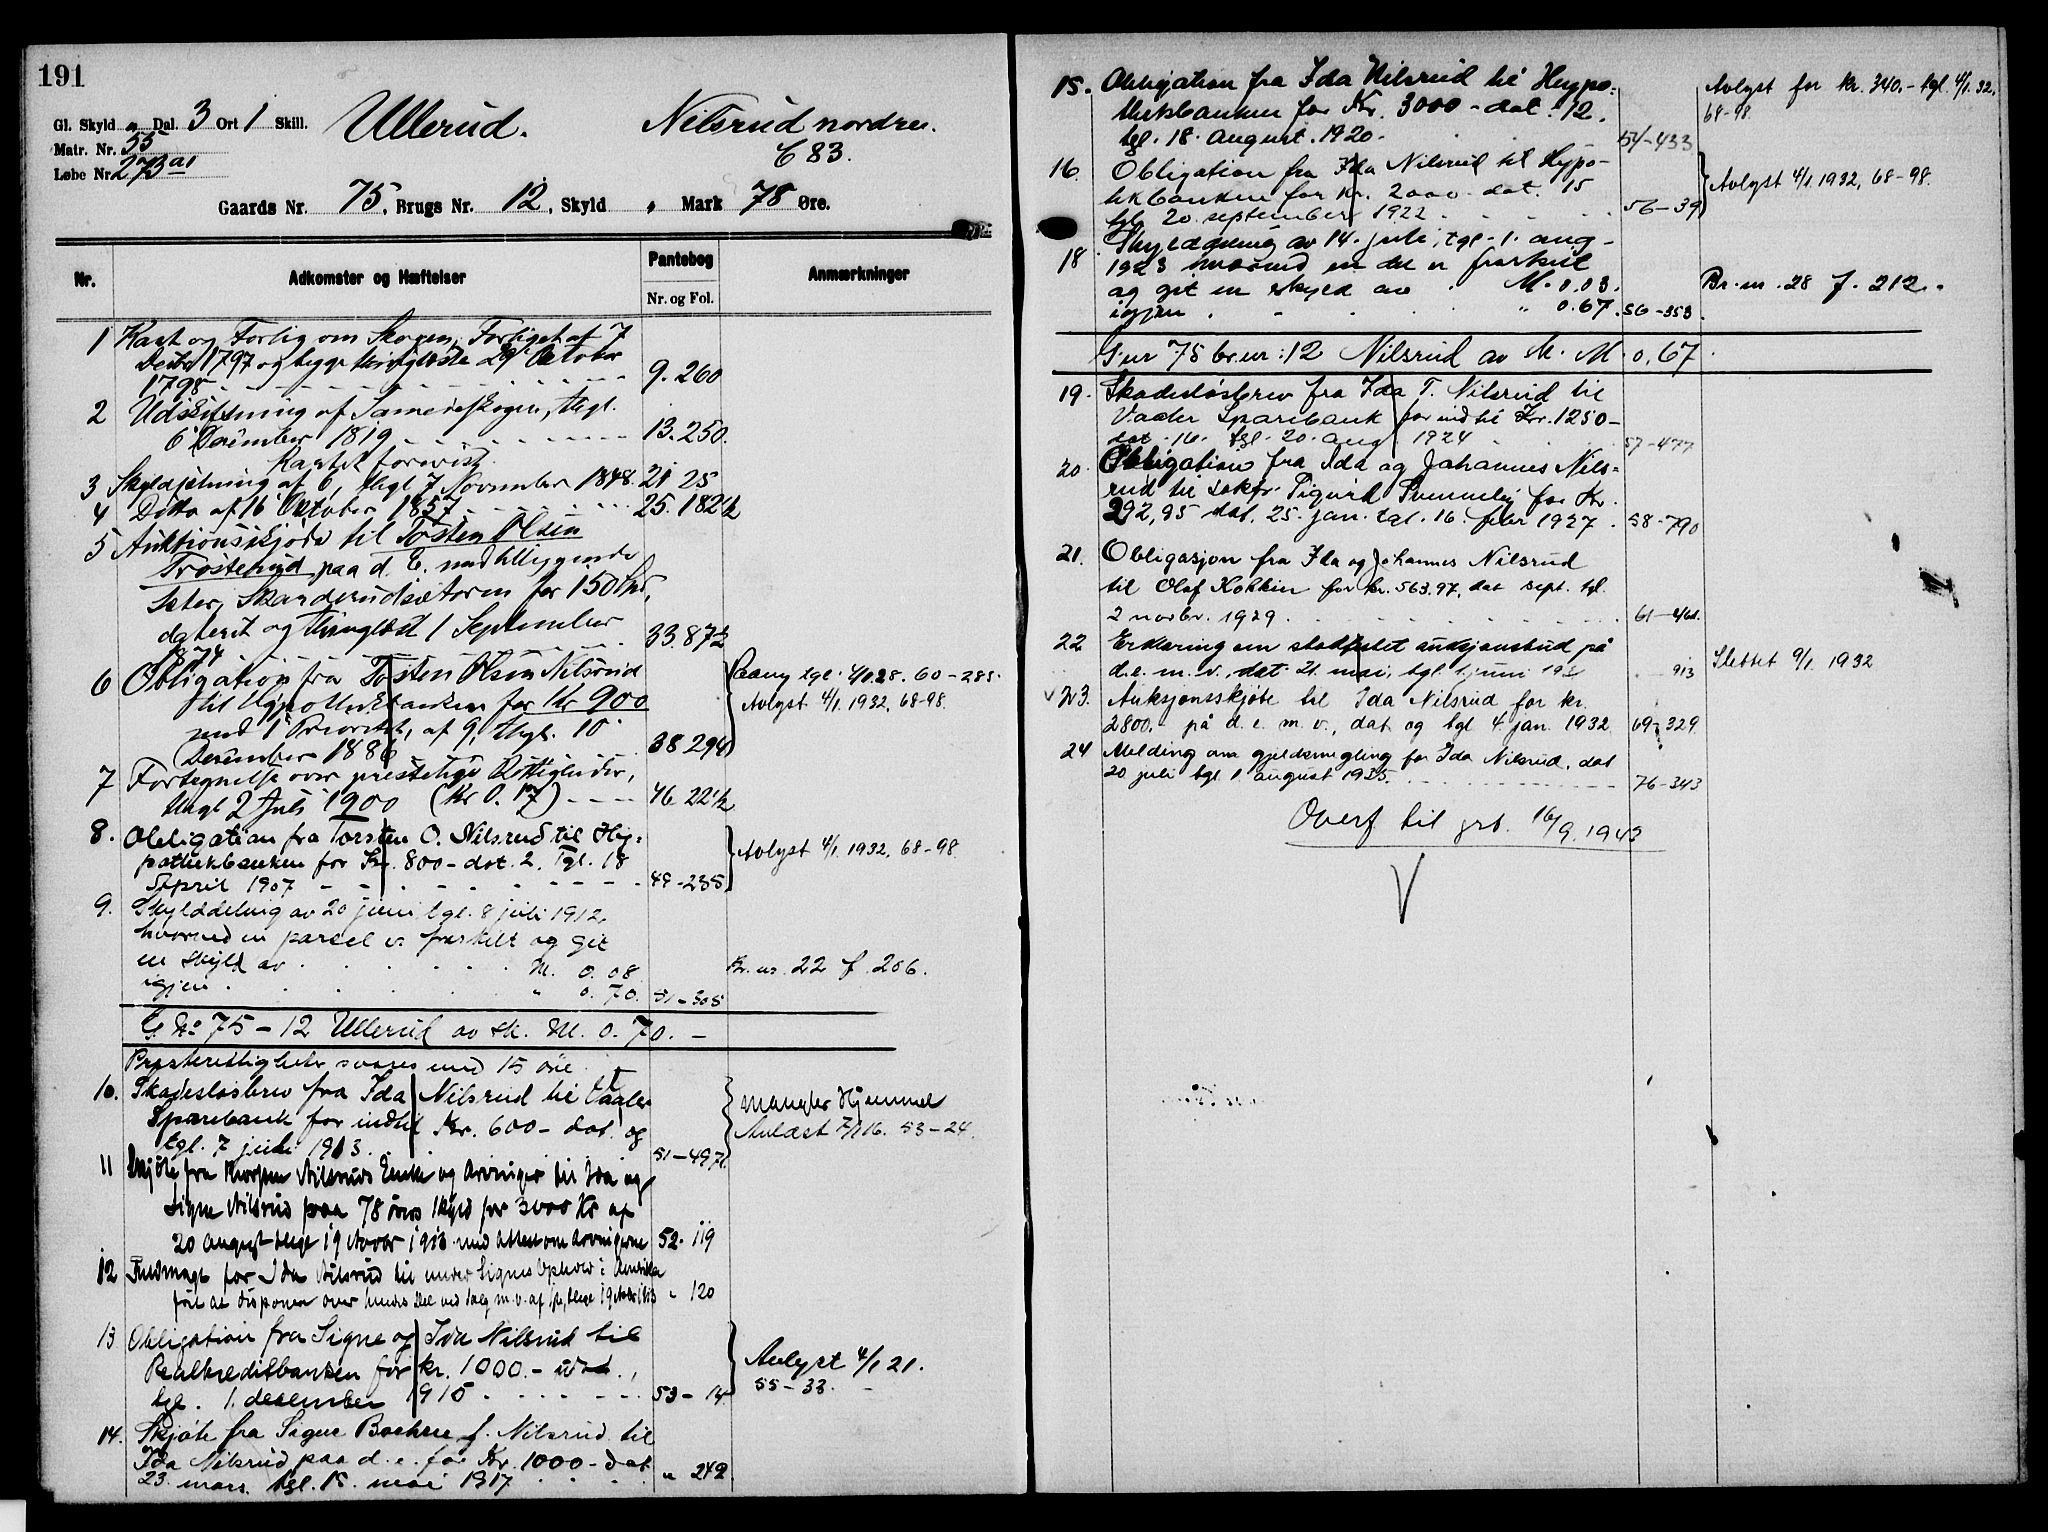 191
Gl. Skyld " Dal. 3 Ort 1 Skill. Ullerud. Nilsrud nordre.
Matr. Nr. 55 C 83.
Løbe Nr. 273 a1
Gaards Nr. 75, Brugs Nr. 12, Skyld " Mark 78 Øre.
Nr. Adkomster og Hæftelser Pantebog Anmærkninger
Nr. og Fol.
1 Kart og Forlig om Skogen, Forliget af 7
Decbr 1797 og begge thinglæste 29 October
1798 9. 260
2 Udskiftning af Sameieskogen, thgl.
6 December 1819 13. 250.
Kartet forevist.
3 Skyldsetning af 6, thgl 7 November 1848. 21 25
4 Ditto af 16 Oktober 1857 25. 182½
5 Auktionsskjøde til Tosten Olsen
Trosterud paa d. E. med tilliggende
Sæter, Skarderudsæteren for 150 Spd,
dateret og thinglæst 1 September
1874 33. 87½
6 Obligation fra Tosten Olsen Nilsrud
til Hypothekbanken for Kr 900
med 1 Prioritet, af 9, thgl. 10
December 1886 38 294
tgl. 4/1 28. 60-285.
Avlyst 4/1. 1932, 68-98.
7 Fortegnelse over prestelige Rettigheder,
thgl 2 Juli 1900 (Kr 0. 17) 46 22½
8. Obligation fra Torsten O. Nilsrud til Hy-
pothekbanken for Kr. 800 - dat. 2. Tgl. 18
April 1907 49-235
Avlyst 4/1. 1932, 68-98.
9. Skylddeling av 20 juni, tgl. 8 juli 1912,
hvorved en parsel er fraskilt og git
en skyld av M. 0. 08
igjen " 0. 70. 51-305
Br. nr. 22 f. 206.
G. No 75-12 Ullerud av sk. M. 0. 70. -
Presterettigheter svares med 15 øre
10. Skadesløsbrev fra Ida Nilsrud til Vaaler
Sparebank for indtil Kr. 600 - dat. og
tgl. 7 juli 1913. 51-497
mangler Hjemmel
Avlæst 7/1 16. 53-24.
11 Skjøte fra Thorsten Nilsruds Enke og Arvinger til Ida og
Signe Nilsrud paa 78 øres skyld for 3000 Kr af
20 august thgl 19 Novbr 1913 med attest om Arvingerne 52. 119
12 Fuldmagt for Ida Nilsrud til under Signes Ophold i Amerika
at disponere over hendes Del ved Salg m. v. af thgl 19 Novbr 1913 " 120
13 Obligation fra Signe og Ida Nilsrud til
Realkreditbanken for kr. 1000.-
tgl. 1. desember 1915 53-14
Avlyst 4/1 21.
55-33.
14. Skjøte fra Signe f. Nilsrud til
Ida Nilsrud paa d. e. for Kr. 1000 - dat
23. mars. tgl. 15. mai 1917 " 242
15. Obligation fra Ida Nilsrud til Hypo-
thekbanken for Kr. 3000 - dat. 12,
tgl. 18. august. 1920. 54-433
Avlyst for kr. 340.- tgl. 4/1. 32.
68-98.
16. Obligation fra Ida Nilsrud til Hypo-
tekbanken for Kr. 2000 - dat. 15
tgl. 20. september 1922 56-39
Avlyst 4/1 1932, 68-98.
18 Skylddeling av 14. juli, tgl. 1. aug.
1923 hvorved en del er fraskilt
og git en skyld av M. 0.03.
igjen " 0.67. 56-353
Br. nr. 28 f. 212.
Gnr 75 br.nr: 12 Nilsrud av sk. M. 0,67.
19. Skadesløsbrev fra Ida T. Nilsrud til
Vaaler Sparebank for indtil Kr. 1250 -
dat. 16. tgl. 20. aug 1924 57-477
20. Obligation fra Ida og Johannes Nils-
rud til sakfr. Sigurd for Kr.
292,95 dat. 25. jan. tgl. 16. febr 1927. 58-790
21. Obligasjon fra Ida og Johannes Nilsrud
til Olaf for kr. 563.97, dat sept. tgl.
2 novbr. 1929 61-461.
22 Erklæring om stadfestet auksjonsbud på
d.e. m. v., dat 21. mai, tgl. 1. juni 193 913
Slettet 9/1. 1932
23. Auksjonsskjøte til Ida Nilsrud for kr.
2800.- på d. e. m. v., dat og tgl 4 jan. 1932 69-329
24 Melding om gjeldsmegling for Ida Nilsrud, dat
20 juli tgl 1 august 1935. 76-343
Overf til grb. 16/9. 1943